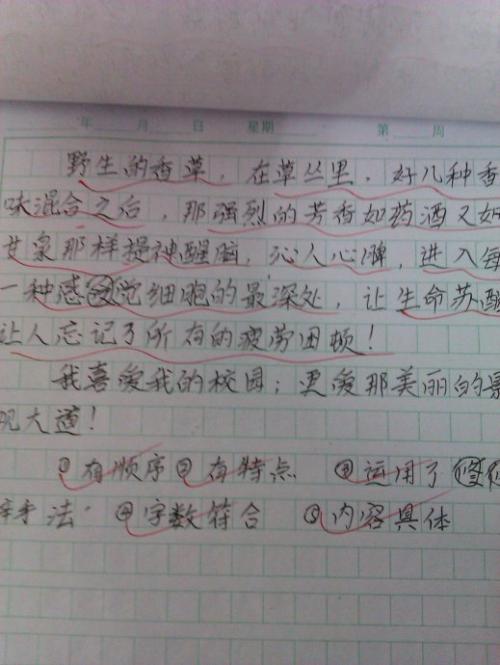 年 月 日 星期 第 周
野生的香草，在草丛里，好几种香
味混合之后，那强烈的芳香如药酒又如
甘泉那样提神醒脑，沁人心脾，进入每
一种感觉细胞的最深处，让生命苏醒
让人忘记了所有的疲劳困顿！
我喜爱我的校园；更爱那美丽的景
观大道！
①有顺序 ②有特点 运用了修
辞手法 ④字数符合 ⑤内容具体